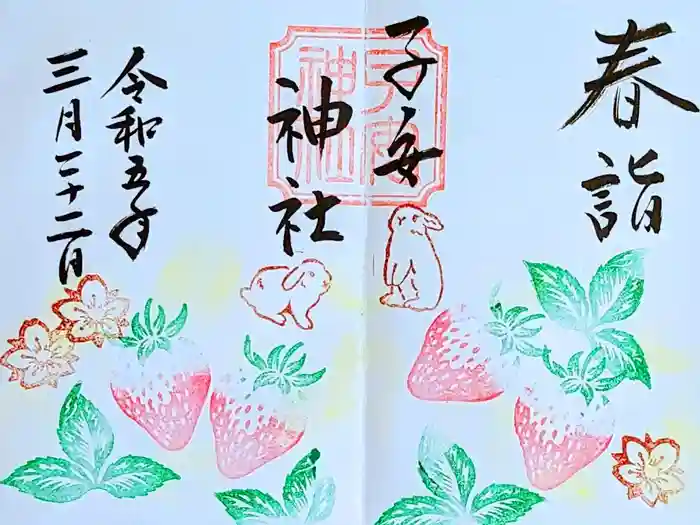 春詣
子安
神社
令和五年
三月二十二日
子安
神社